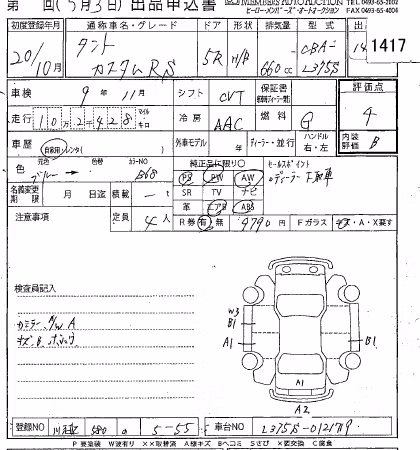 第 回(5月3日)出品申込書
MEMBERS AUTO AUCTION
ヒーロー・メンバーズ・オートオークション
FAX 0493-65-4004
初度登録年月 通称車名・グレード ドア 形状 排気量 型式 出
20/10月 タント カスタムRS 5R H/B 660cc CBA-L375S 1417
車検 9年11月 シフト CVT 保証書 評価点
走行 10,2428 マイル キロ 冷房 AAC 燃料 G 4
車歴 自家用・レンタ 外車モデル 年 ディーラー・並行 ハンドル 右・左 内装評価 B
色 元色 ブルー→ 色替 カラーNO B68 純正品に限り○ セールスポイント
PS PW AW ディーラー下取車
名義変更期限 月 日迄 積載 t SR TV ナビ
革 エアB ABS
注意事項 定員 4人 R券 有 無 9790円 Fガラス キズ・A・X要す
検査員記入
W3
B1
カミラー、N/W A
A1 B1
キズ、B、ボッツ
A1
A2
登録NO 580 5-55 車台NO L375S-0121719
P要塗装 W波有り ××取替済 A線キズ Bヘコミ Sさび ×要交換 C腐食